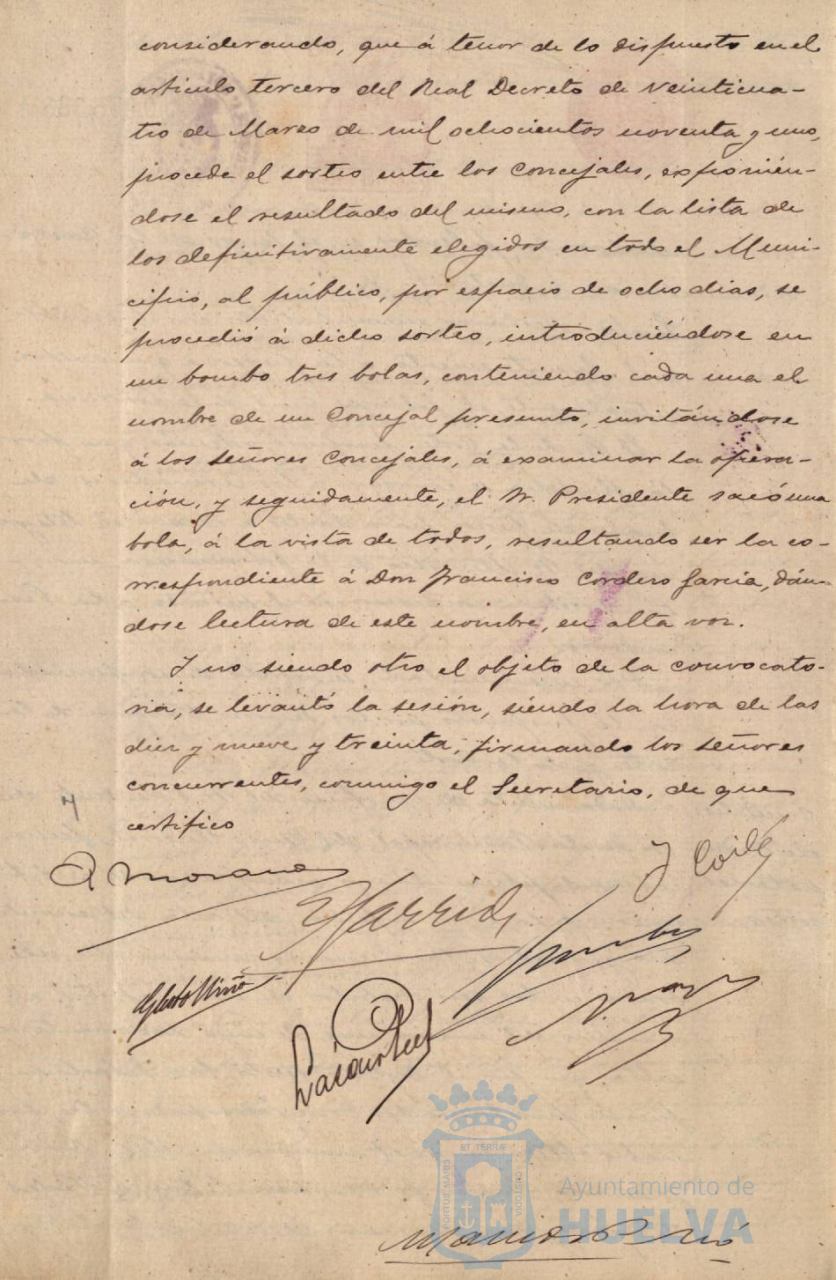 considerando, que á tenor de lo dispuesto en el
artículo tercero del Real Decreto de veinticua-
tro de Marzo de mil ochocientos noventa y uno,
procede el sorteo entre los Concejales, exponién-
dose el resultado del mismo, con la lista de
los definitivamente elegidos en todo el Muni-
cipio, al público, por espacio de ocho dias, se
procedió á dicho sorteo, introduciéndose en
un bombo tres bolas, conteniendo cada una el
nombre de un Concejal presunto, invitándose
á los señores Concejales, á examinar la opera-
ción, y seguidamente, el Sr. Presidente sacó una
bola, á la vista de todos, resultando ser la co-
rrespondiente á Don Francisco Cordero García, dán-
dose lectura de este nombre, en alta voz.
Y no siendo otro el objeto de la convocato-
ria, se levantó la sesión, siendo la hora de las
diez y nueve y treinta, firmando los señores
concurrentes, conmigo el Secretario, de que
certifico
Garrido
ET TERRÆ
Ayuntamiento de
HUELVA